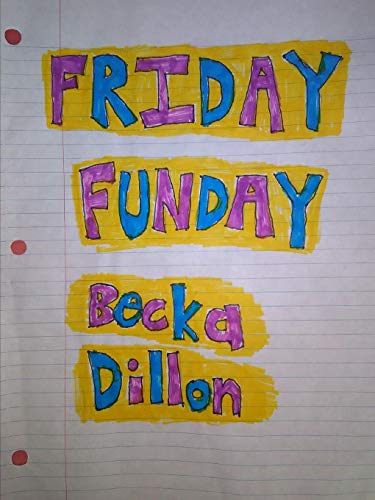 FRIDAY
FUNDAY
Becka
Dillon